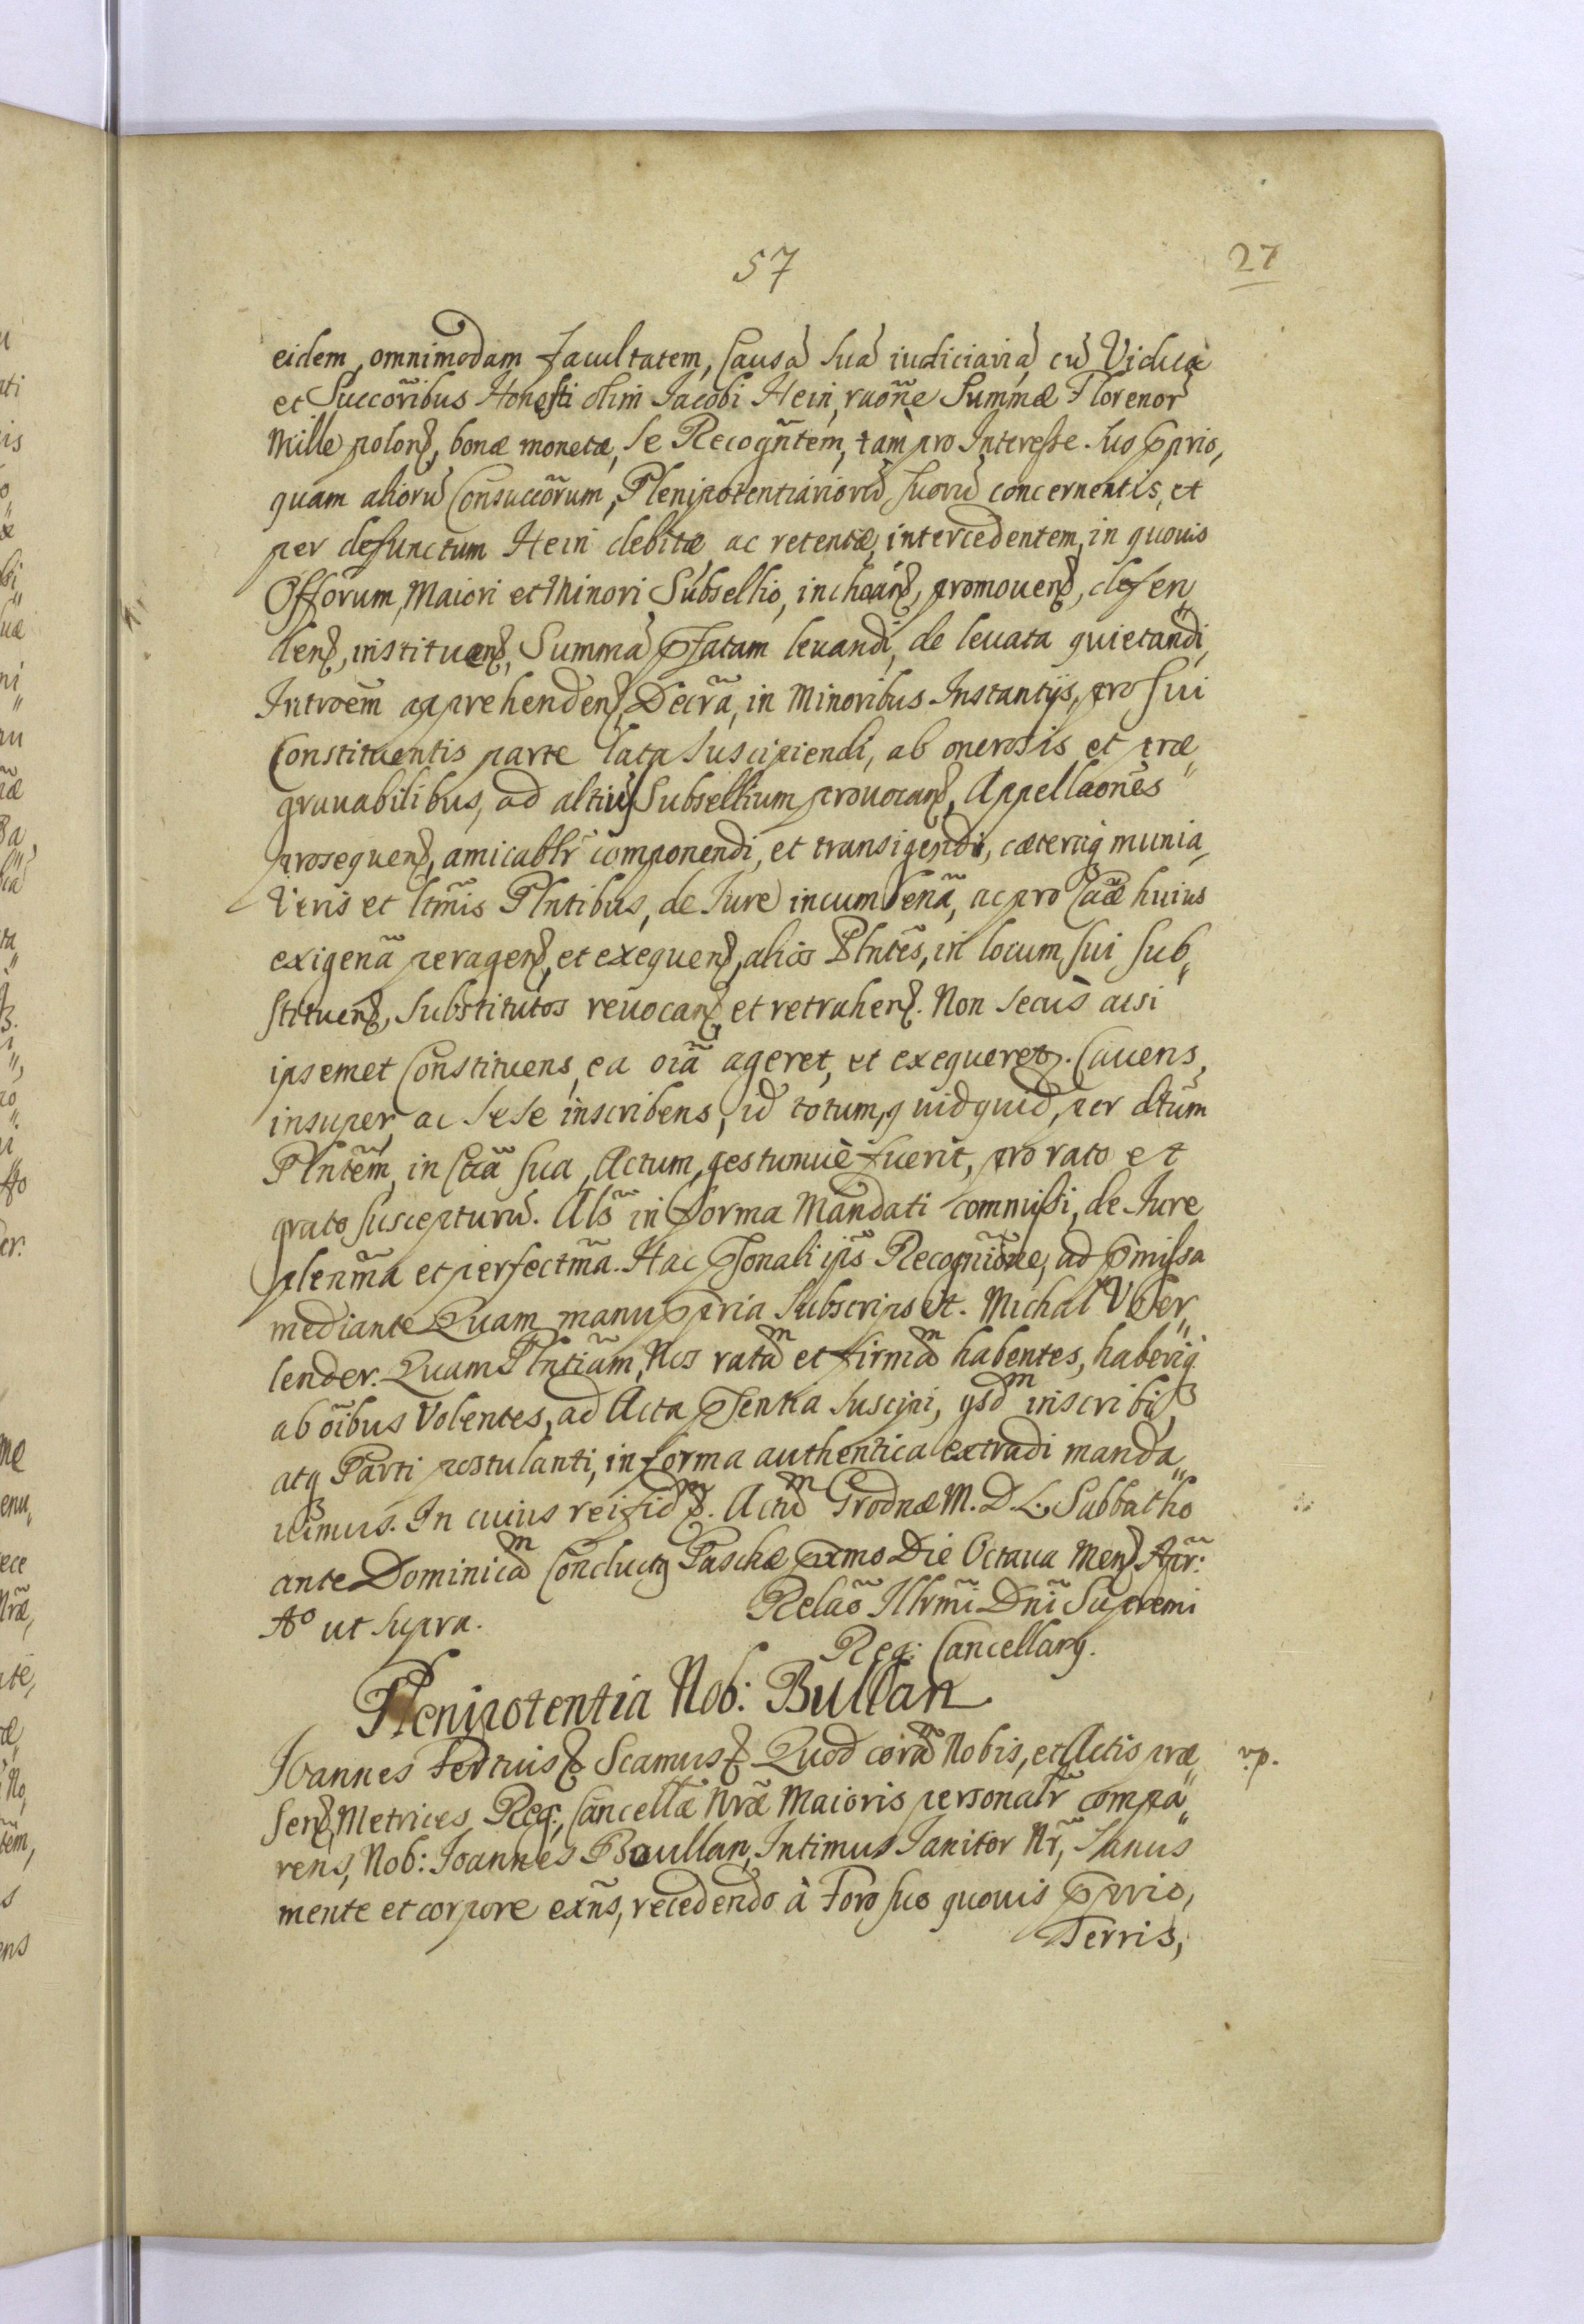 57
27
eidem, omnimodam facultatem, Causã suã iudiciariã, cũ Viduã
et Succõribus Honesti olim Jacobi Hein, raõne Summæ Florenor̃
Mille polonꝫ, bonæ monetæ, se Recogñtem, tam pro Interesse suo ꝓprio,
quam aliorũ Consuccõrum, Plenipotentiariorũ suorũ concernentis, et
per defunctum Hein debitæ ac retentæ, intercedentem, in quouis
Offõrum, Maiori et Minori Subsellio, inchoanꝫ, promouenꝫ, defen„
denꝫ, instituenꝫ, Summã p̃fatam leuandi, de leuata quietandi,
Introẽm apprehendenꝫ, Decr̃a, in Minoribus Instantijs, pro sui
Constituentis parte lata suscipiendi, ab onerosis et præ„
grauabilibus, ad altius Subsellium prouocanꝫ, Appellaõnes
prosequenꝫ, amicablr̃ componendi, et transigendi, cæteraq̃ munia,
Veris et ltm̃is Plñtibus, de Jure incumbenã, ac pro Caæ̃ huius
exigenã peragenꝫ, et exequenꝫ, alios Plñtes, in locum sui sub„
stituenꝫ, substitutos reuocanꝫ et retrahenꝫ. Non secus acsi
ipsemet Constituens, ea oĩa ageret, et exequeretꝫ. Cauens,
insuper ac sese inscribens, id totum, quidquid, per dt̃um
Plñtem, in Cãa sua, Actum, gestumuè fuerit, pro rato et
grato suscepturũ. Als̃ in forma Mandati commissi, de Jure
plenm̃a et perfectm̃a. Hac p̃sonali ips̃ Recogniõne, ad p̃missa
mediante Quam manu ꝓpria subscripsit. Michal Vber„
lender. Quam Plñtiam, Nos ratam et firmam habentes, haberiq̃
ab oĩbus Volentes, ad Acta p̃sentia suscipi, ijsdm inscribi,
atq̃ Parti postulanti, in forma authentica extradi manda„
uimus. In cuius rei fidm ꝫ. Actũ Grodnæ M. D. L. Sabbatho
ante Dominicam Conductꝫ Paschæ pr̃mo Die Octaua Menꝫ Apr̃:
Aº ut supra.
Relaõ Illrm̃i Dñi Supremi
Reg: Cancellarij.
Plenipotentia Nob: Bullan
Joannes Tertiusꝫ Scamusꝫ Quod coram Nobis, et Actis præ„
v.p.
senꝫ, Metrices Reg: Cancellæ Nr̃æ Maioris personalr̃ compa„
rens, Nob: Joannes Boullan, Intimus Janitor Nr̃, Sanus
mente et corpore exñs, recedendo à Foro suo quouis ꝓprio,
Terris,